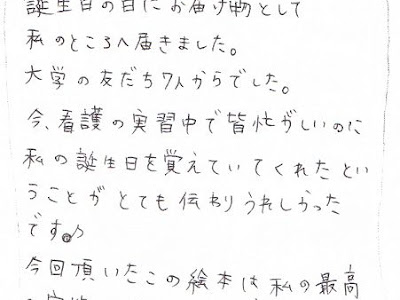 誕生日の日にお届け物として
私のところへ届きました。
大学の友だち7人からでした。
今、看護の実習中で皆忙がしいのに
私の誕生日を覚えていてくれたとい
うことがとても伝わりうれしかった
です♪
今回頂いたこの絵本は私の最高